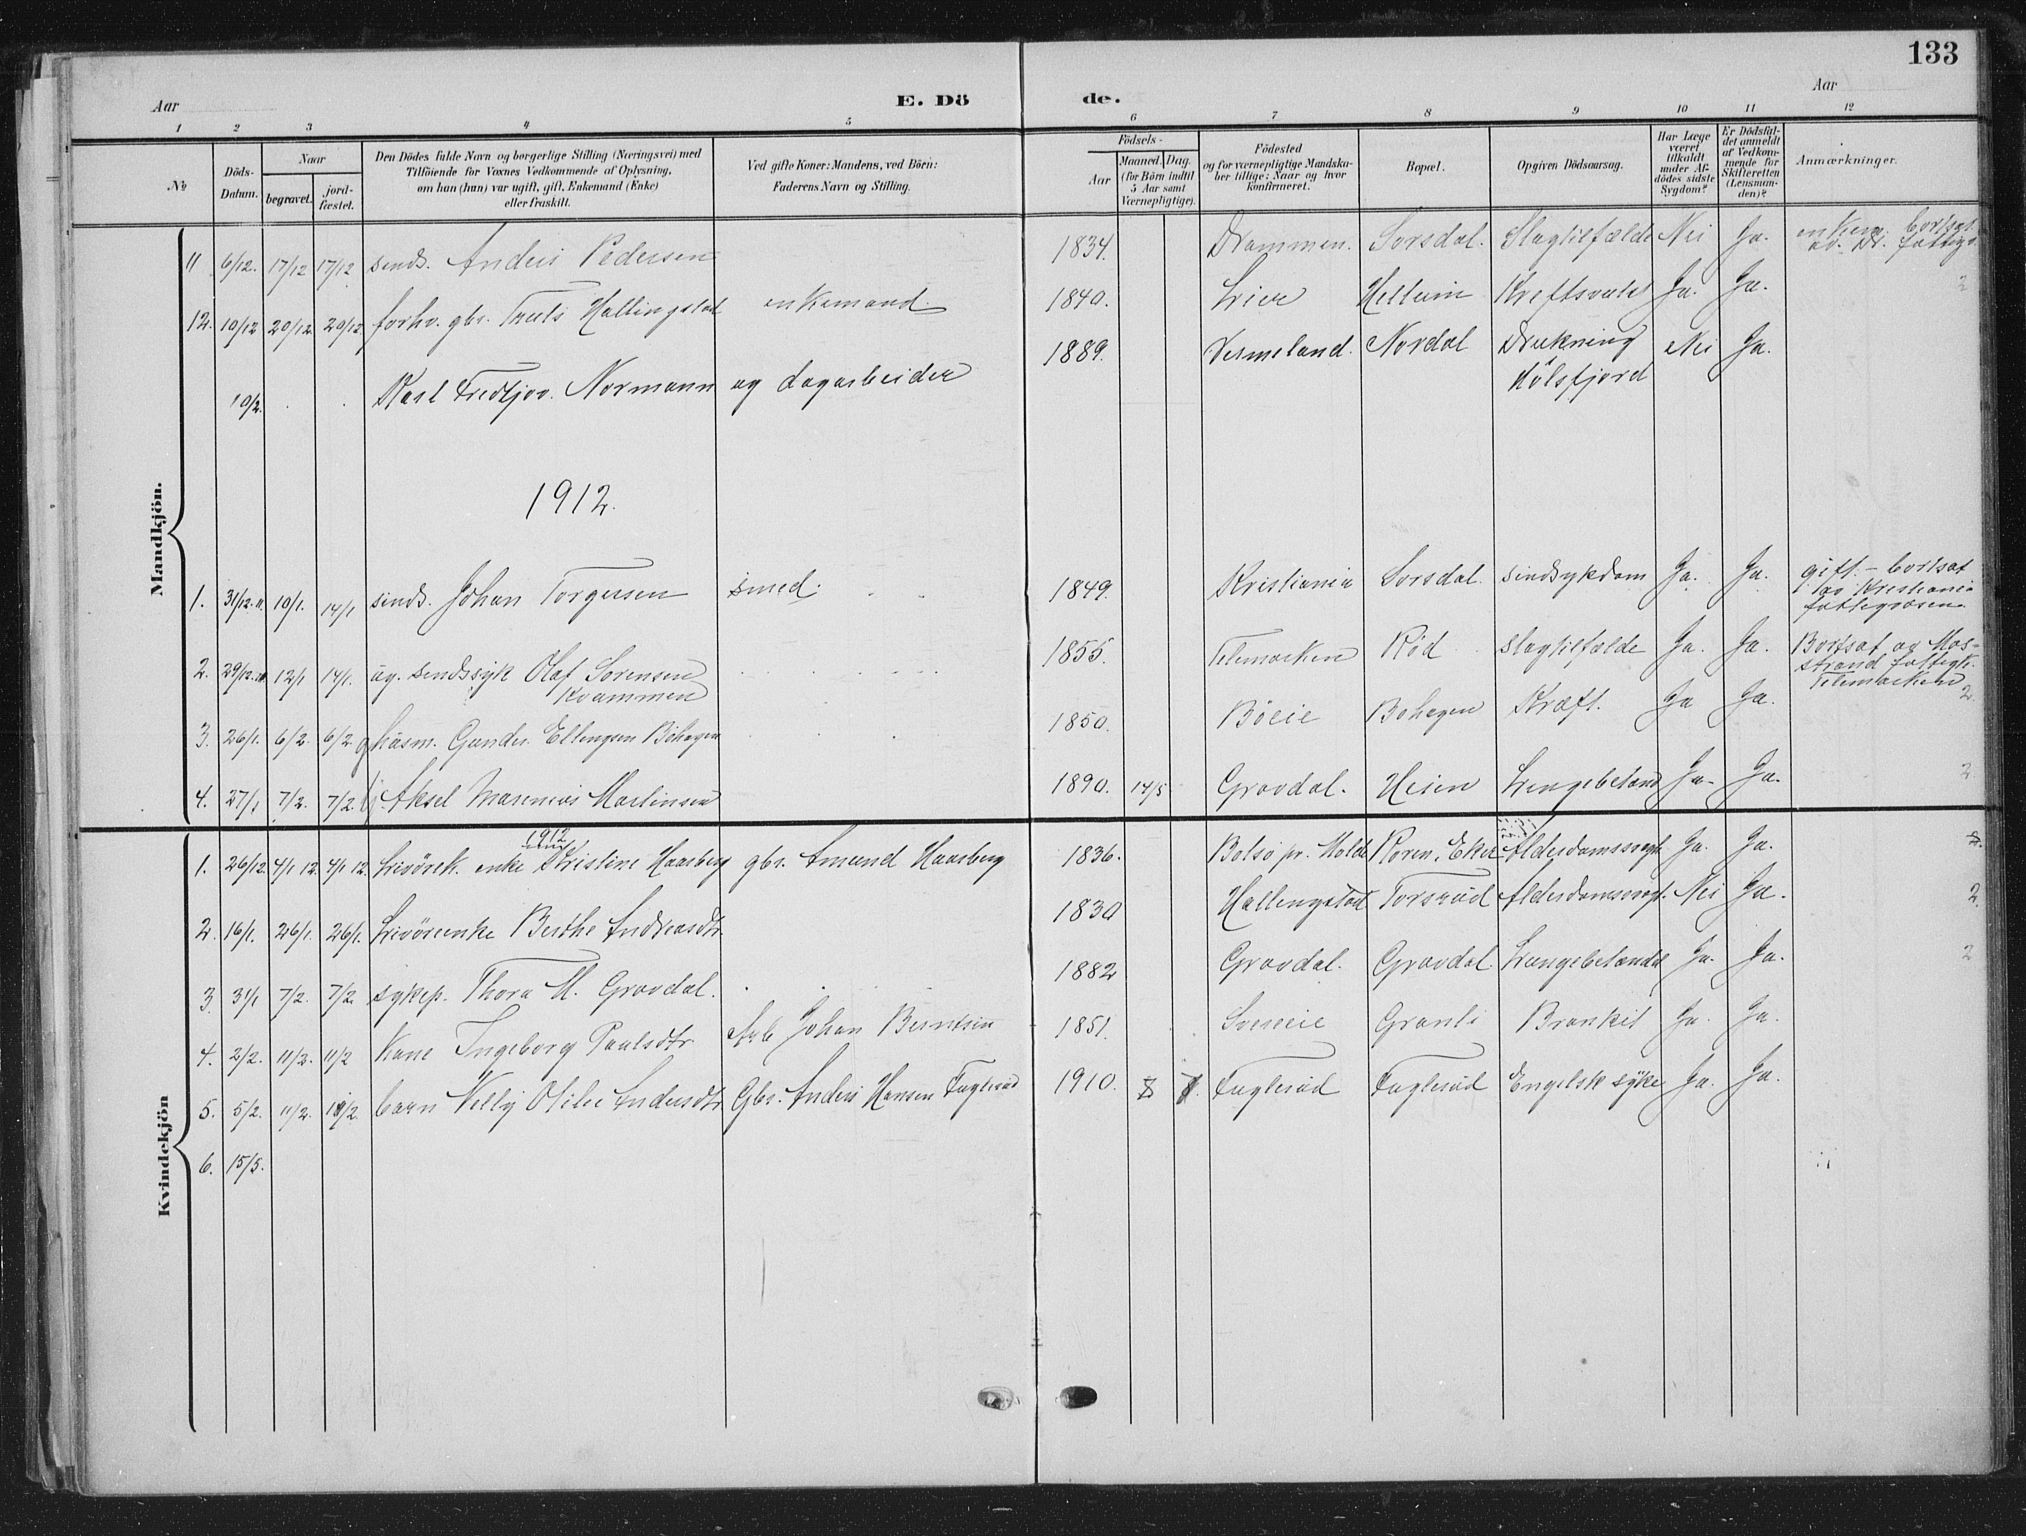 133
Aar
E. Dö
de.
Aar
1 2 3 4 5 6 7 8 9 10 11 12
No
Döds-Datum.
Naar
begravet.
jord-fæstet.
Den Dödes fulde Navn og borgerlige Stilling (Næringsvei) med
Tilföiende for Voxnes Vedkommende af Oplysning,
om han (hun) var ugift, gift, Enkemand (Enke)
eller fraskilt.
Ved gifte Koner: Mandens, ved Börn:
Faderens Navn og Stilling.
Födsels-
Aar
Maaned. Dag.
(for Börn indtil
5 Aar samt
Værnepligtige).
Födested
og for værnepligtige Mandska-
ber tillige: Naar og hvor
konfirmeret.
Bopæl.
Opgiven Dödsaarsag.
Har Læge
været
tilkaldt
under Af-
dödes sidste
Sygdom?
Er Dödsfal-
det anmeldt
af Vedkom-
mende for
Skifteretten
(Lensman-
den)?
Anmærkninger.
Mandkjön.
11 6/12. 17/12 17/12 sinds. Anders Pedersen 1834. Drammen. Sorsdal. Slagtilfælde Nei Ja. enkem. bortsat
av Dr. fattigv.
12. 10/12 20/12 20/12 forhv. gbr. Truls Hallingstad enkemand. 1840. Lier Hellum Kreftsvulst Ja. Ja. 2
10/2. . . Karl Fredtjov. Normann ug dagarbeider 1889. Vermeland. Nordal Drukning Nei Ja.
Holsfjord
1912.
1. 31/12.11. 10/1. 14/1 sinds. Johan Torgersen smed. 1849. Kristiania Sorsdal. sindsykdom Ja. Ja. gift. – bortsat
av Kristiania
fattigvæsen.
2. 29/12.11. 12/1 14/1. ug. sindssyk Olaf Sorensen 1855. Telemarken Rød slagtilfælde Ja. Ja. Bortsat av Mos-
Kvammen strand fattigk.
Telemarken
3. 26/1. 6/2. 6/2. husm. Gunder Ellingsen Böhagen 1850. Böeie Bohagen Kræft. Ja Ja. 2.
4. 27/1 7/2. 7/2. Aksel Marenius Martinsen 1890. 14/5 Grovdal. Heien Lungebetænd Ja. Ja. 2
Kvindekjön
1912
1. 26/12. 4/1 12. 4/1 12. Livörek. enke Kristine Haasberg gbr. Amund Haasberg 1836. Bolsö pr. Molde Koren, Eker Alderdomssvagh Ja. Ja. 2.
2. 16/1. 26/1. 26/1. Livöreenke Berthe Andreasdtr. 1830 Hallingstad Torsrud Alderdomssvagh. Nei Ja. 2.
3 31/1 7/2. 7/2 sykep. Thora M. Grovdal. 1882 Grovdal. Grovdal. Lungebetændel Ja. Ja. 2
4. 2/2. 11/2. 11/2 Kone Ingeborg Paulsdtr. Arb Johan Berntsen 1851. Sveeeie Granli Bronkit Ja. Ja.
5. 5/2. 11/2. 11/2. barn Nelly Otilie Andersdtr. Gbr. Anders Hansen Fuglerud 1910. Fuglerud Fuglerud Engelsk syke Ja. Ja.
6. 15/5.